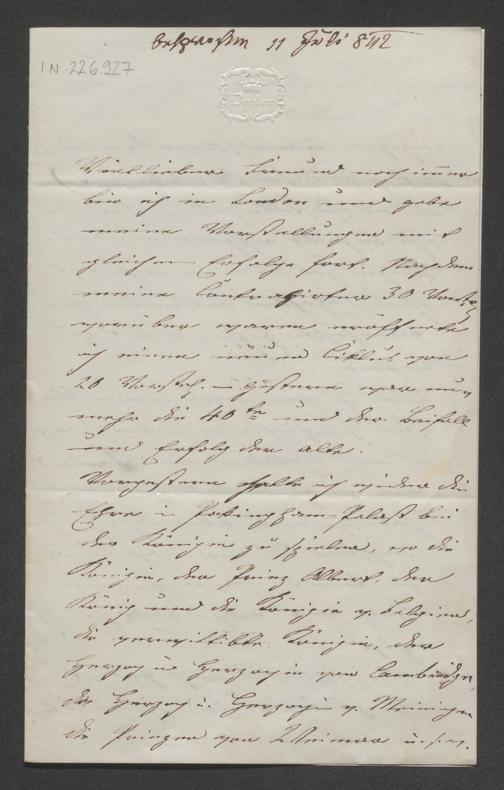 11 Juli 842
I.N. 226.927
Döbler
Viellieber Freund noch immer
bin ich in London und gebe
meine Vorstellungen mit
gleichem Erfolge fort. Nachdem
meine Contrahirten 30 Vorstg
vorüber waren eröffnete
ich einen neuen Ciklus von
20 Vorstg. – gestern war nun
mehr die 40te und der Beifall
und Erfolg der alte.
Vorgestern hatte ich wieder die
Ehre in Pakingham-Palast bei
der Königin zu spielen, wo die
Königin, der Prinz Albert, der
König und die Königin v. Belgien,
die verwittibte Königin, der
Herzog u Herzogin von Cambridge,
der Herzog u. Herzogin v. Meiningen
die Prinzen von Weimar u.s.w.